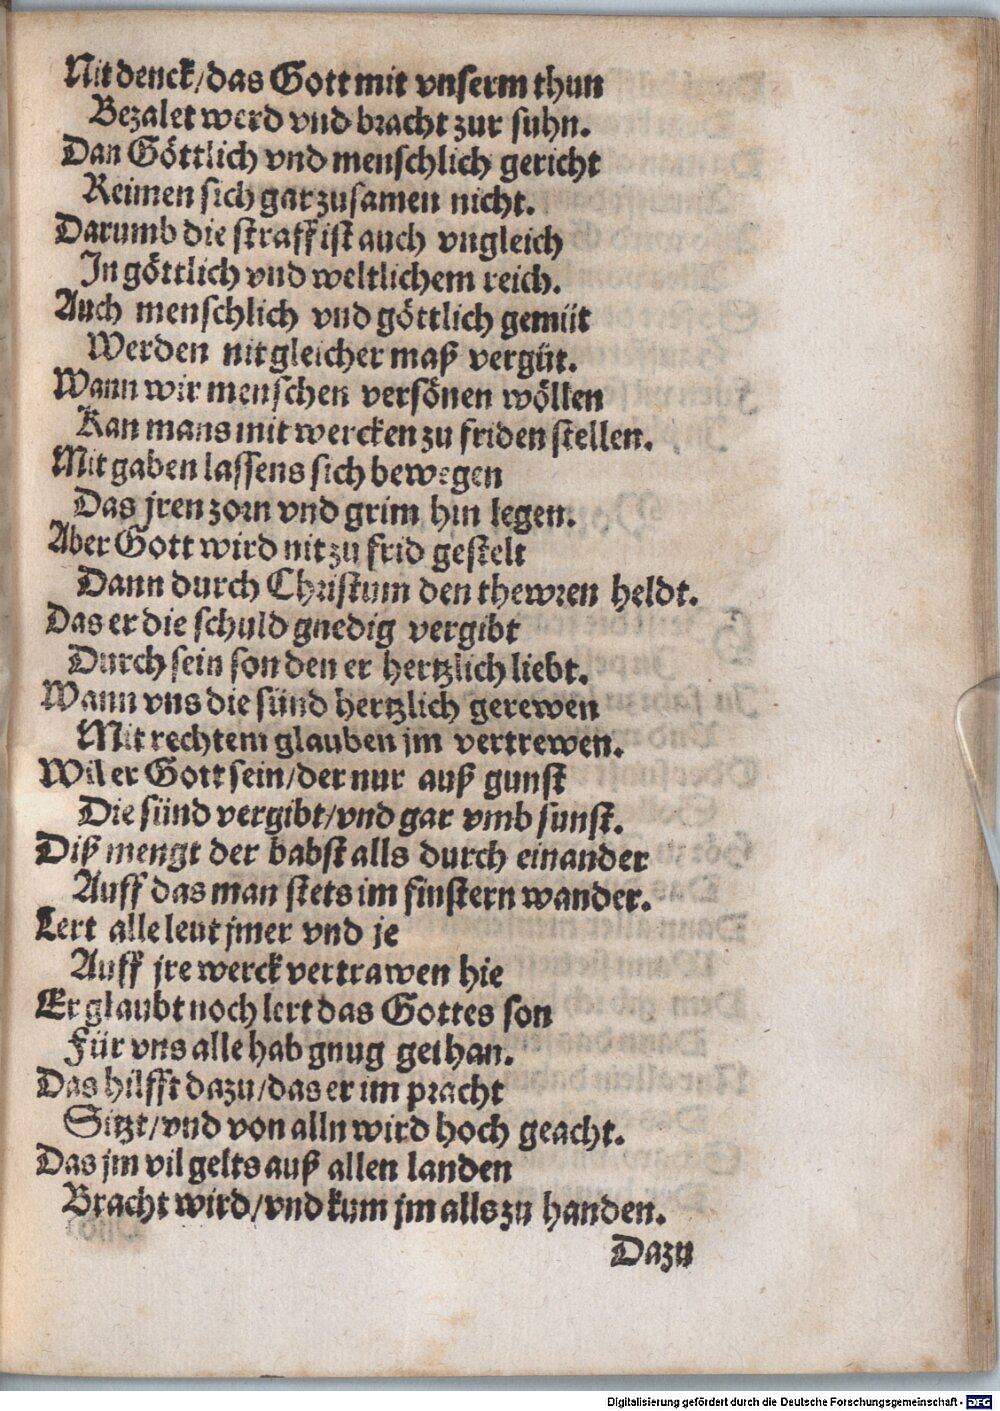 Nit denck/das Gott mit vnserm thun
Bezalet werd vnd bracht zur suhn.
Dan Göttlich vnd menschlich gericht
Reimen sich gar zusamen nicht.
Darumb die straff ist auch vngleich
In göttlich vnd weltlichem reich.
Auch menschlich vnd göttlich gemüt
Werden nit gleicher maß vergüt.
Wann wir menschen versönen wöllen
Kan mans mit wercken zu friden stellen.
Mit gaben lassens sich bewegen
Das jren zorn vnd grim hin legen.
Aber Gott wird nit zu frid gestelt
Dann durch Christum den thewren heldt.
Das er die schuld gnedig vergibt
Durch sein son den er hertzlich liebt.
Wann vns die sünd hertzlich gerewen
Mit rechtem glauben jm vertrewen.
Wil er Gott sein/der nur auß gunst
Die sünd vergibt/vnd gar vmb sunst.
Diß mengt der babst alls durch einander
Auff das man stets im finstern wander.
Lert alle leut jmer vnd je
Auff jre werck vertrawen hie
Er glaubt noch lert das Gottes son
Für vns alle hab gnug gethan.
Das hilfft dazu/das er im pracht
Sitzt/vnd von alln wird hoch geacht.
Das jm vil gelts auß allen landen
Bracht wird/vnd kum jm alls zu handen.
Dazu
Digitalisierung gefördert durch die Deutsche Forschungsgemeinschaft - DFG